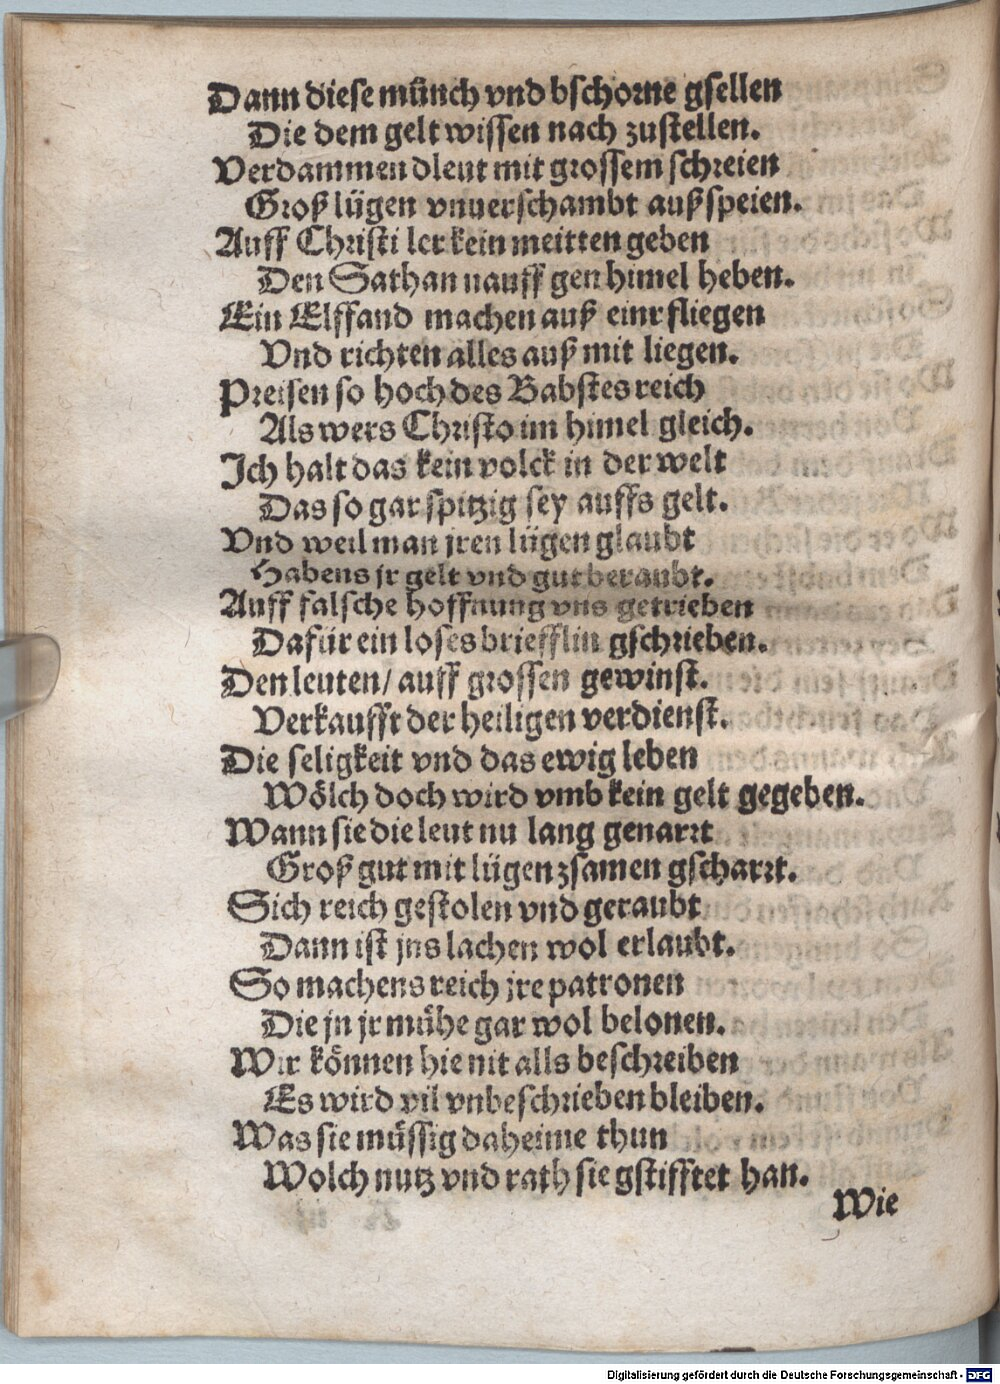 Dann diese münch vnd bschorne gsellen
Die dem gelt wissen nach zustellen.
Verdammen dleut mit grossem schreien
Groß lügen vnuerschambt außspeien.
Auff Christi ler kein meitten geben
Den Sathan nauff gen himel heben.
Ein Elffand machen auß einr fliegen
Vnd richten alles auß mit liegen.
Preisen so hoch des Babstes reich
Als wers Christo im himel gleich.
Ich halt das kein volck in der welt
Das so gar spitzig sey auffs gelt.
Vnd weil man jren lügen glaubt
Habens jr gelt vnd gut beraubt.
Auff falsche hoffnung vns getrieben
Dafür ein loses briefflin gschrieben.
Den leuten/ auff grossen gewinst.
Verkaufft der heiligen verdienst.
Die seligkeit vnd das ewig leben
Wölch doch wird vmb kein gelt gegeben.
Wann sie die leut nu lang genarrt
Groß gut mit lügen zsamen gscharrt.
Sich reich gestolen vnd geraubt
Dann ist jns lachen wol erlaubt.
So machens reich jre patronen
Die jn jr mühe gar wol belonen.
Wir können hie nit alls beschreiben
Es wird vil vnbeschrieben bleiben.
Was sie müssig daheime thun
Wolch nutz vnd rath sie gstifftet han.
Wie
Digitalisierung gefördert durch die Deutsche Forschungsgemeinschaft - DFG